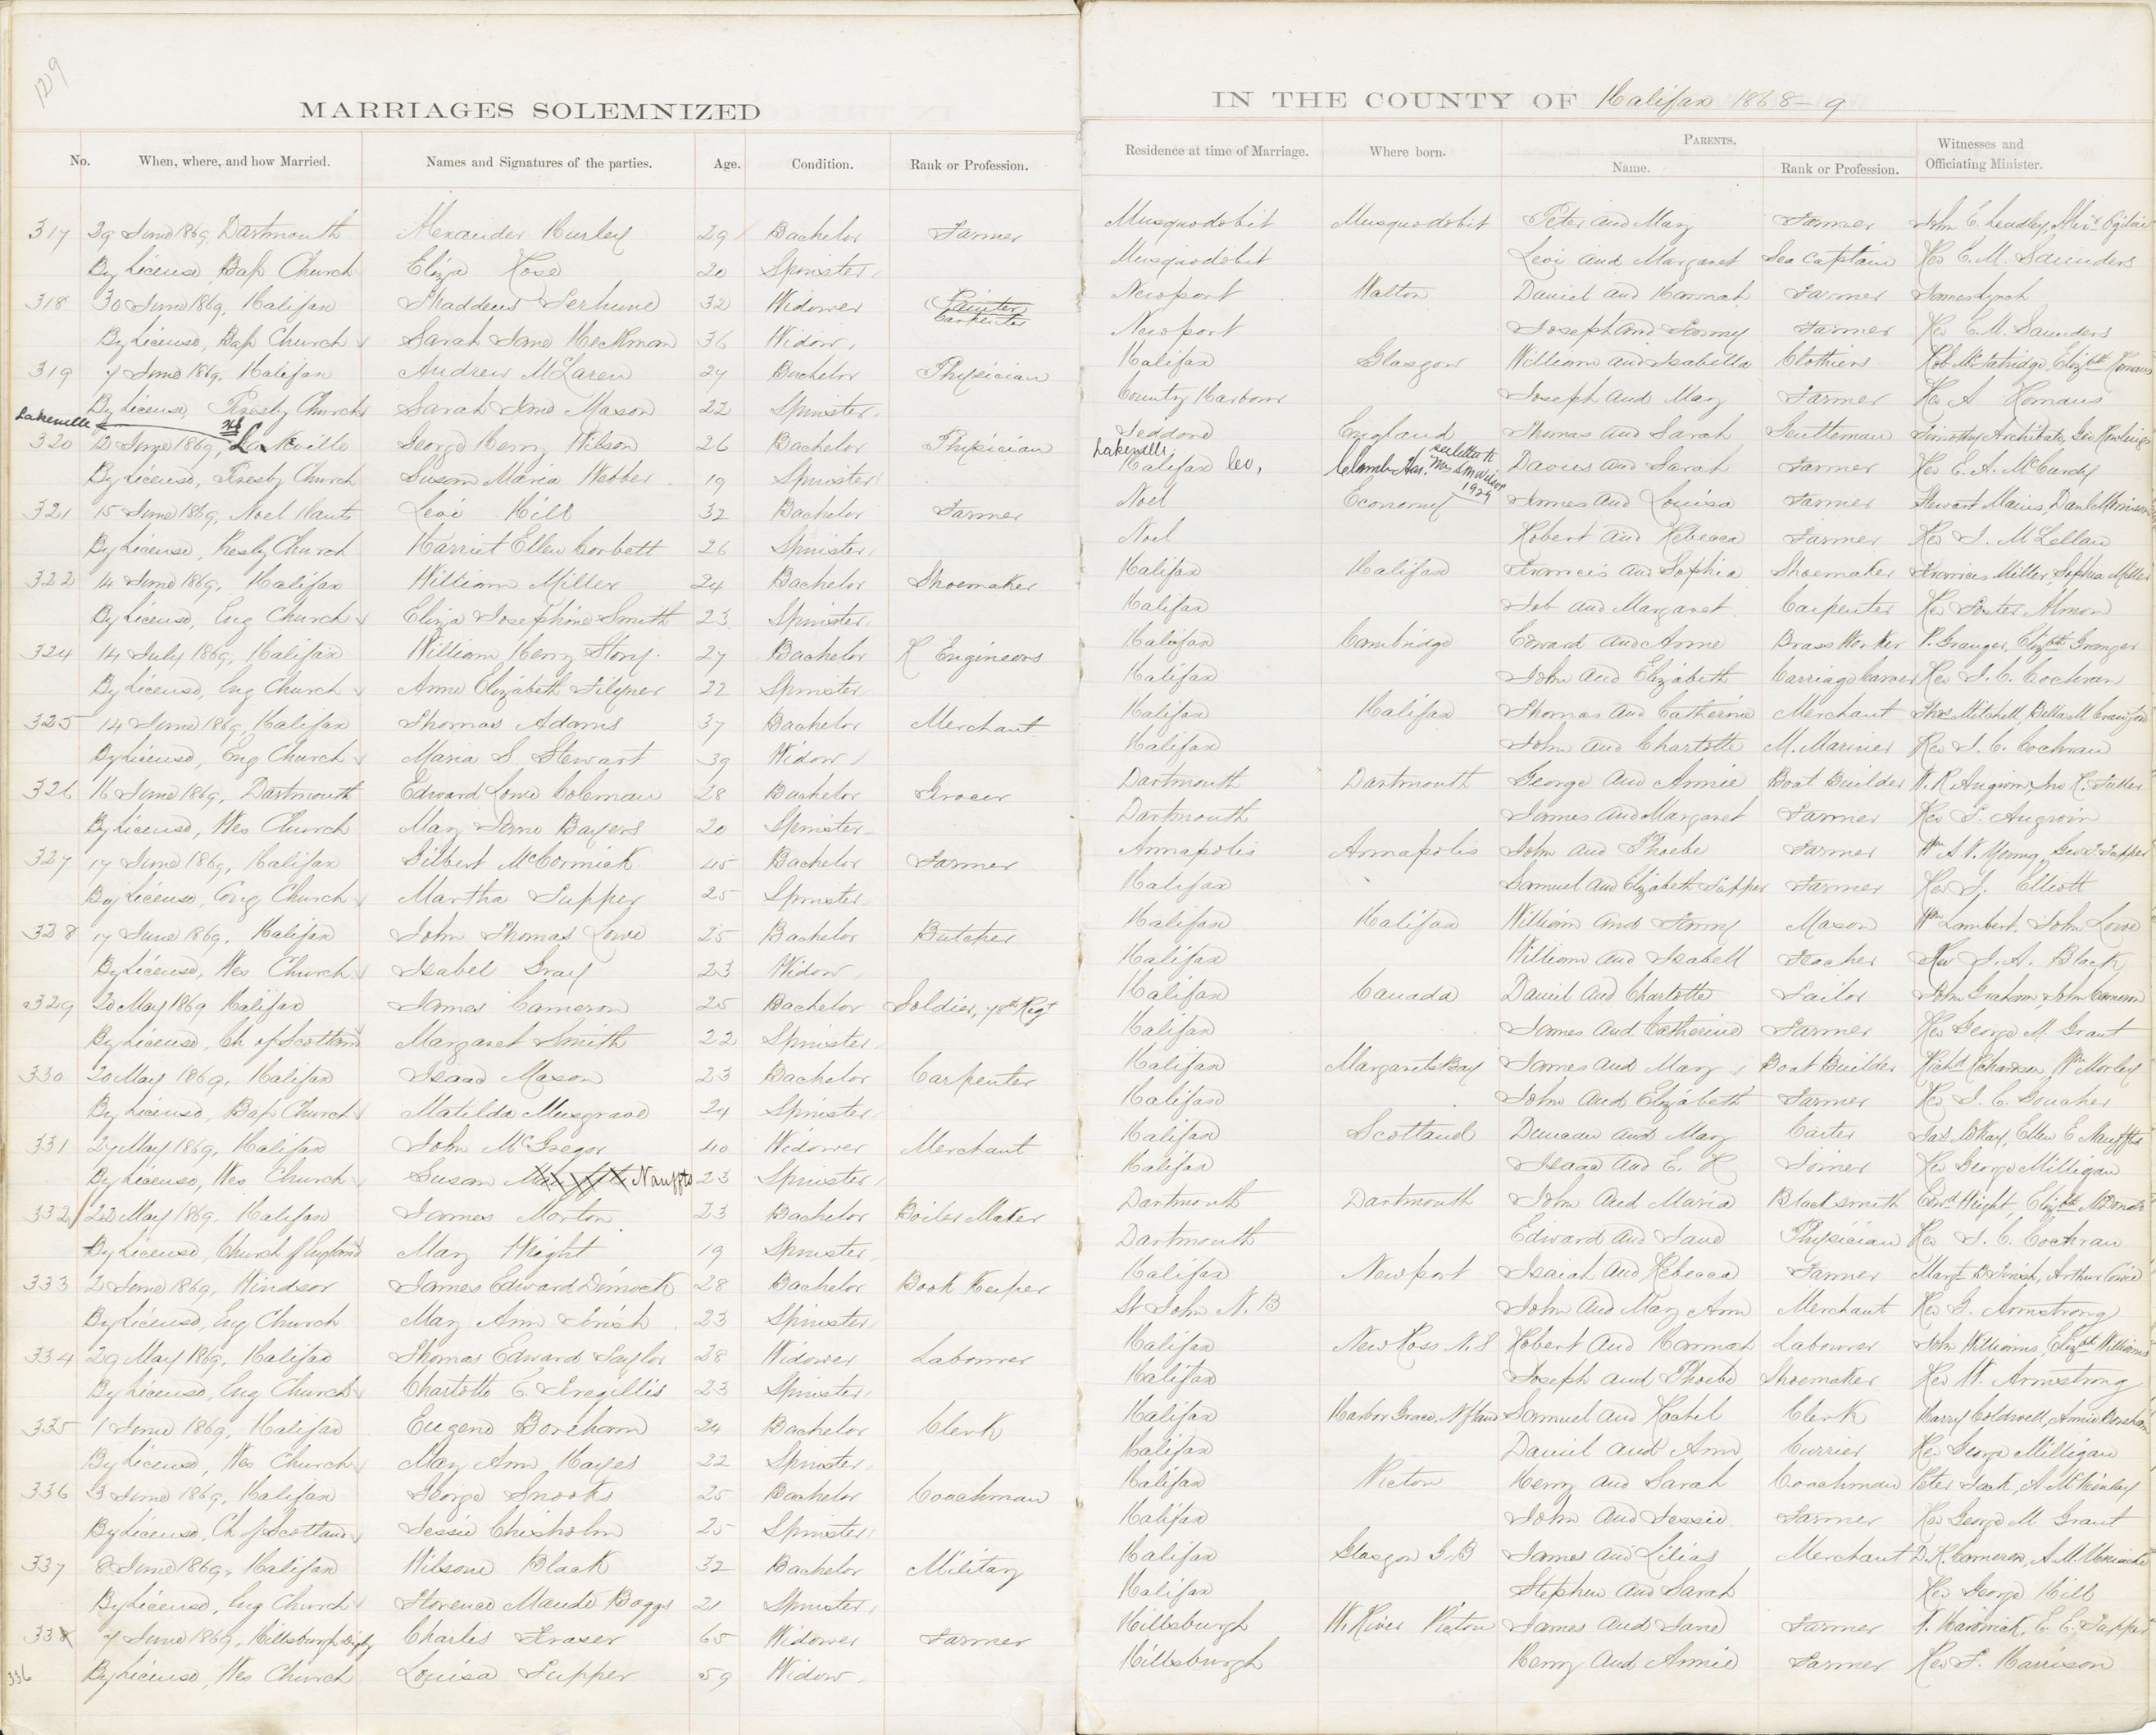 129
MARRIAGES SOLEMNIZED
IN THE COUNTY OF Halifax 1868-9
No. When, where, and how Married. Names and Signatures of the parties. Age. Condition. Rank or Profession. Residence at time of Marriage. Where born. PARENTS. Name. Rank or Profession. Witnesses and Officiating Minister.
317 29 June 1869, Dartmouth Alexander Hurley 29 Bachelor Farmer Musquodobit Musquodobit Peter and Mary Farmer John E. Leadley, Ogilvie
By License, Bap Church Eliza Rose 20 Spinster Musquodobit Levi and Margaret Sea Captain Rev E. M. Saunders
318 30 June 1869, Halifax Thaddeus Terhune 32 Widower Painter Carpenter Newport Walton Daniel and Hannah Farmer James Lynch
By License, Bap Church Sarah Jane Heckman 36 Widow Newport Joseph and Fanny Farmer Rev E. M. Saunders
319 7 June 1869, Halifax Andrew McLaren 27 Bachelor Physician Halifax Glasgow William and Isabella Clothiers Elizbth Romans
By License, Presby Church Sarah Jane Mason 22 Spinster County Harbour Joseph and Mary Farmer Rev A Romans
Lakeville
320 12 June 1869, Lakeville George Henry Wilson 26 Bachelor Physician Seddord England Thomas and Sarah Gentleman Timothy Archibald, Geo Rawlings
By License, Presby Church Susan Maria Webber 19 Spinster Lakeville Halifax Co, Clamb Har. see letter th Mrs S M Wilson 1929 Davies and Sarah Farmer Rev E. A. McCurdy
321 15 June 1869, Noel Hants Levi Hill 32 Bachelor Farmer Noel Economy James and Louisa Farmer Stewart Danl Morrison
By License, Presby Church Harriet Ellen Corbett 26 Spinster Noel Robert and Rebecca Farmer Rev J. McLellan
322 14 June 1869, Halifax William Miller 24 Bachelor Shoemaker Halifax Halifax Francis and Sophia Shoemaker Francis Miller, Sophia Miller
By License, Eng Church Eliza Josephine Smith 23 Spinster Halifax Job and Margaret Carpenter Rev Foster Almon
324 14 July 1869, Halifax William Henry Story 27 Bachelor R Engineers Halifax Cambridge Edward and Anne Brass Worker P. Granger, Elizbth Granger
By License, Eng Church Anne Elizabeth Filyner 22 Spinster Halifax John and Elizabeth Carriage Carver Rev J. C. Cochran
325 14 June 1869, Halifax Thomas Adams 37 Bachelor Merchant Halifax Halifax Thomas and Catherine Merchant Thos Mitchell, Bella M Crawford
By License, Eng Church Maria S. Stewart 39 Widow Halifax John and Charlotte M. Mariner Rev J. C. Cochran
326 16 June 1869, Dartmouth Edward Lowe Coleman 28 Bachelor Grocer Dartmouth Dartmouth George and Annie Boat Builder W. R. Angwin, Jno R. Fuller
By License, Wes Church Mary Jane Bayers 20 Spinster Dartmouth James and Margaret Farmer Rev T. Angwin
327 17 June 1869, Halifax Gilbert McCormick 45 Bachelor Farmer Annapolis Annapolis John and Phoebe Farmer Wm A V. Young, Geo T. Tupper
By License, Cong Church Martha Tupper 25 Spinster Halifax Samuel and Elizabeth Tupper Farmer Rev J. Elliott
328 17 June 1869, Halifax John Thomas Lowe 25 Bachelor Butcher Halifax Halifax William and Fanny Mason Wm Lambert, John Lowe
By License, Wes Church Isabel Gray 23 Widow Halifax William and Isabell Teacher Rev J. A. Black
329 20 May 1869 Halifax James Cameron 25 Bachelor Soldier, 78th Regt Halifax Canada Daniel and Charlotte Tailor John Graham, John Cameron
By License, Ch of Scotland Margaret Smith 22 Spinster Halifax James and Catherine Farmer Rev George M. Grant
330 20 May 1869, Halifax Isaac Mason 23 Bachelor Carpenter Halifax Margarets Bay James and Mary Boat Builder Richd Richardson, Wm Morley
By License, Bap Church Matilda Musgrave 24 Spinster Halifax John and Elizabeth Farmer Rev J. C. Goucher
331 27 May 1869, Halifax John McGregor 40 Widower Merchant Halifax Scotland Duncan and Mary Carter Jas McKay, Ellen E Nauffts
By License, Wes Church Susan Nauffts 23 Spinster Halifax Isaac and E. R Joiner Rev George Milligan
332 22 May 1869, Halifax James Morton 23 Bachelor Boiler Maker Dartmouth Dartmouth John and Maria Blacksmith Edwd Wright, Elizbth McDonald
By License, Church of England Mary Wright 19 Spinster Dartmouth Edward and Jane Physician Rev J. C. Cochran
333 2 June 1869, Windsor James Edward Dimock 28 Bachelor Book Keeper Halifax Newport Isaiah and Rebecca Farmer Margt B Irish, Arthur Cowie
By License, Eng Church Mary Ann Irish 23 Spinster St John N. B John and Mary Ann Merchant Rev G. Armstrong
334 29 May 1869, Halifax Thomas Edward Taylor 28 Widower Labourer Halifax New Ross N. S Robert and Hannah Labourer John Williams, Elizbth Williams
By License, Eng Church Charlotte E. Tregillis 23 Spinster Halifax Joseph and Phoebe Shoemaker Rev W. Armstrong
335 1 June 1869, Halifax Eugene Boreham 24 Bachelor Clerk Halifax Harbor Grace, Nfland Samuel and Rachel Clerk Harry Coldwell, Annie Boreham
By License, Wes Church Mary Ann Hayes 22 Spinster Halifax Daniel and Ann Currier Rev George Milligan
336 3 June 1869, Halifax George Snooks 25 Bachelor Coachman Halifax Picton Henry and Sarah Coachman Peter Jack, A McKinlay
By License, Ch of Scotland Jessie Chisholm 25 Spinster Halifax John and Jessie Farmer Rev George M. Grant
337 8 June 1869, Halifax Wilsone Black 32 Bachelor Military Halifax Glasgow G. B James and Lilias Merchant D. R. Cameron, A. M. Uniacke
By License, Eng Church Florence Maude Boggs 21 Spinster Halifax Stephen and Sarah Rev George Hill
338 7 June 1869, Hillsburgh Digby Charles Fraser 65 Widower Farmer Hillsburgh W. River Picton James and Jane Farmer E. E. Tupper
336 By License, Wes Church Louisa Tupper 59 Widow Hillsburgh Henry and Annie Farmer Rev F. Harrison